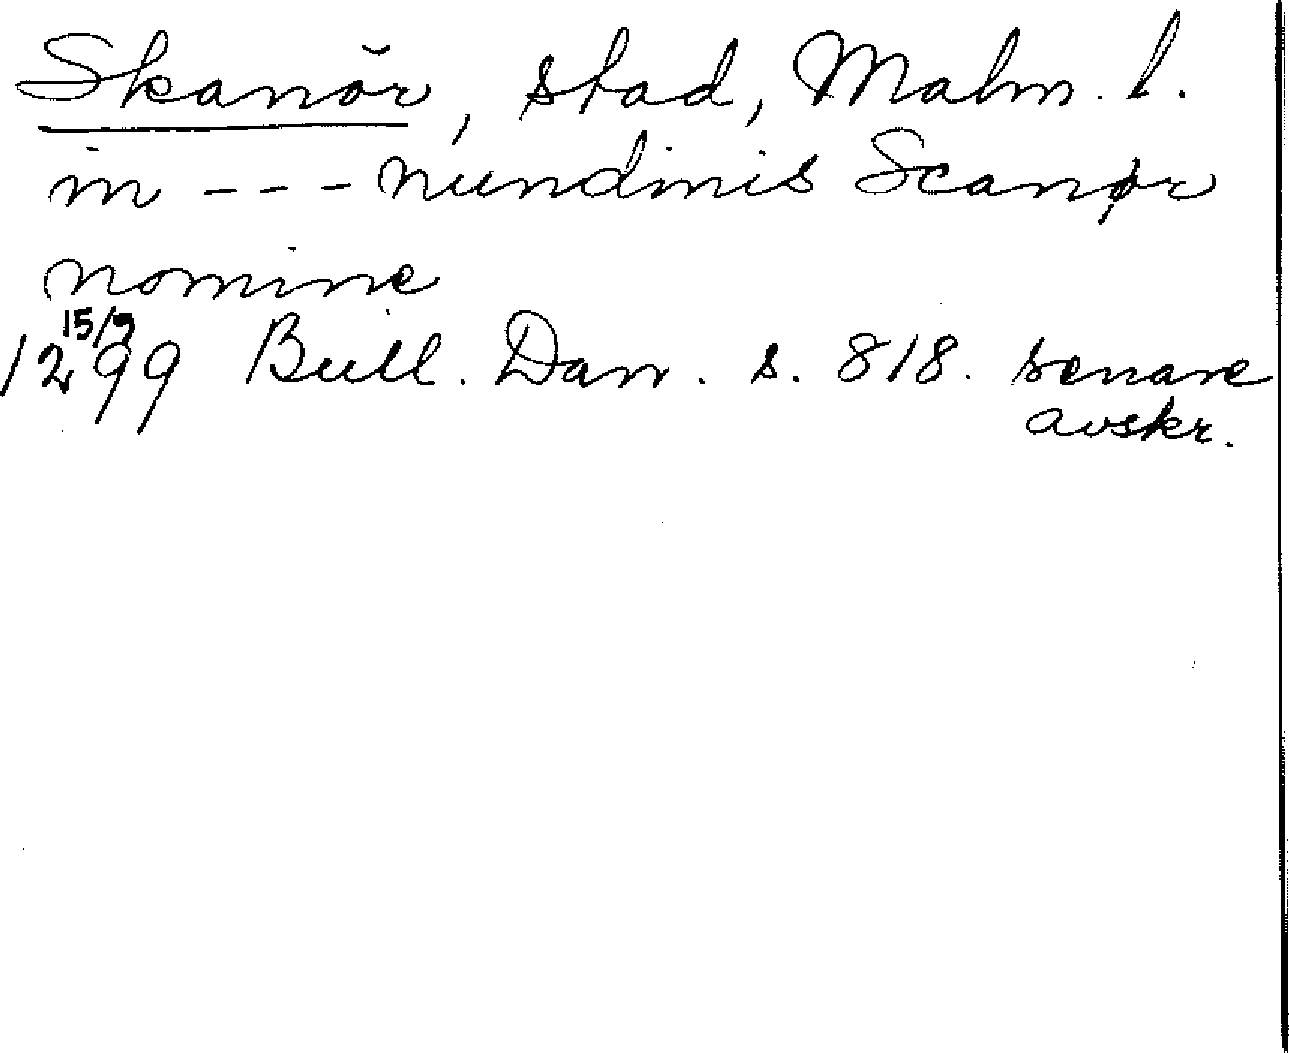 Skanör, stad, Malm. l.
in - - - nundinis Scanør
nomine
15/9
1299 Bull. Dan. s. 818. senare
avskr.